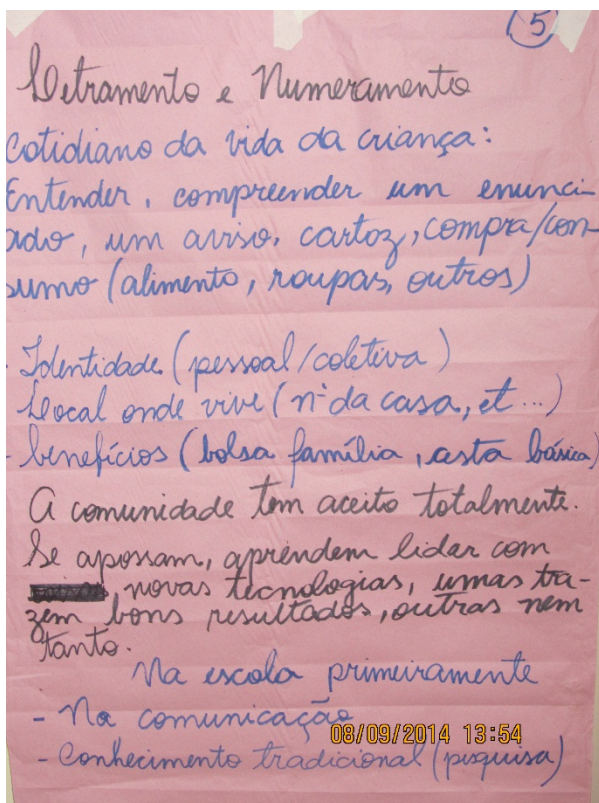 5
Letramento e Numeramento
Cotidiano da vida da criança:
Entender, compreender um enunci-
ado, um aviso, cartoz, compra/con-
sumo (alimento, roupas, outros)
- Identidade (pessoal/coletiva)
Local onde vive (nº da casa, et...)
- benefícios (bolsa família, cesta básica)
A comunidade tem aceito totalmente.
Se apossam, aprendem lidar com
novas tecnologias, umas tra-
zem bons resultados, outras nem
tanto.
Na escola primeiramente
- Na comunicação
08/09/2014 13:54
- Conhecimento tradicional (pesquisa)